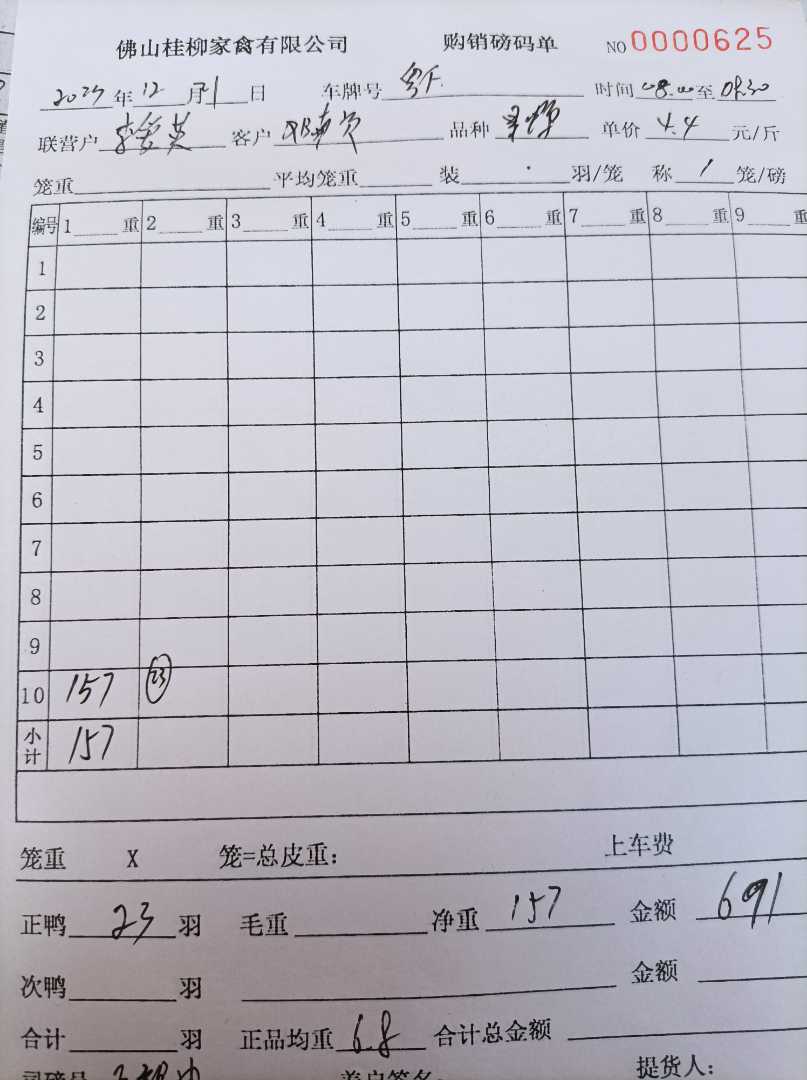 佛山桂柳家禽有限公司 购销磅码单 NO 0000625
2023 年 12 月 21 日 车牌号 时间 08:00 至 08:30
联营户 李爱英 客户 品种 单价 4.4 元/斤
笼重 平均笼重 装 羽/笼 称 1 笼/磅
编号 1 重 2 重 3 重 4 重 5 重 6 重 7 重 8 重 9 重
1
2
3
4
5
6
7
8
9
10 157 23
小计 157
笼重 X 笼=总皮重: 上车费
正鸭 23 羽 毛重 净重 157 金额 691
次鸭 羽 金额
合计 羽 正品均重 6.8 合计总金额
司磅员 养户签名: 提货人: